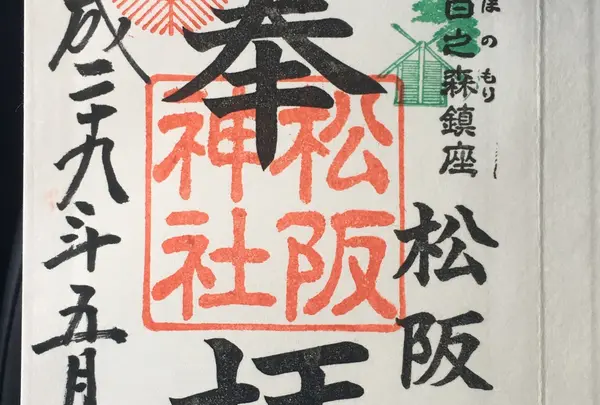 ほのもり
百之森鎮座
松阪
奉拝
松阪
神社
成二十九年五月